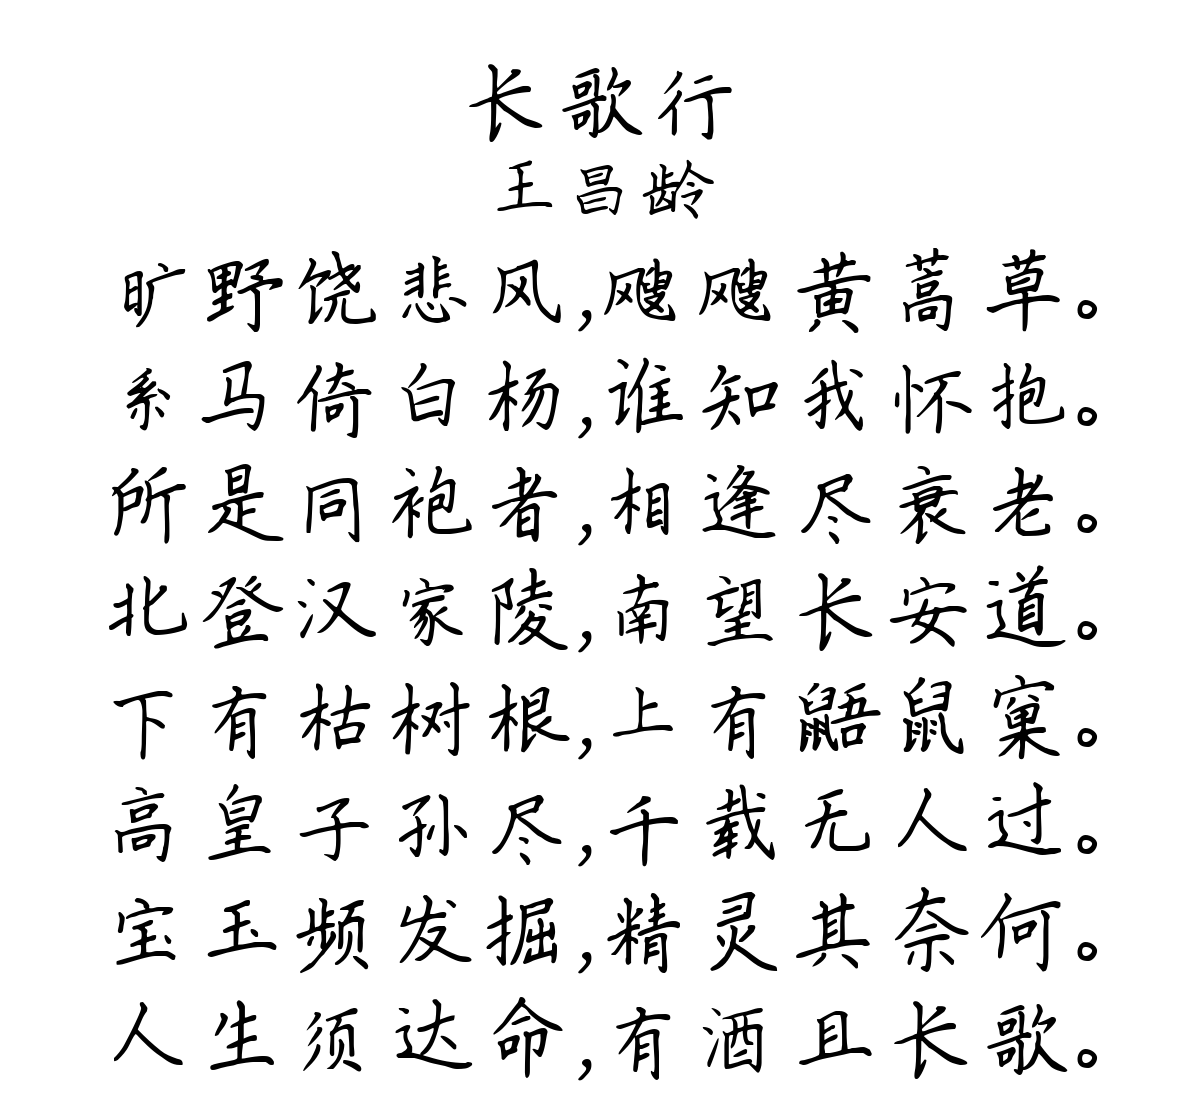 长歌行
王昌龄
旷野饶悲风,飕飕黄蒿草。
系马倚白杨,谁知我怀抱。
所是同袍者,相逢尽衰老。
北登汉家陵,南望长安道。
下有枯树根,上有鼯鼠窠。
高皇子孙尽,千载无人过。
宝玉频发掘,精灵其奈何。
人生须达命,有酒且长歌。